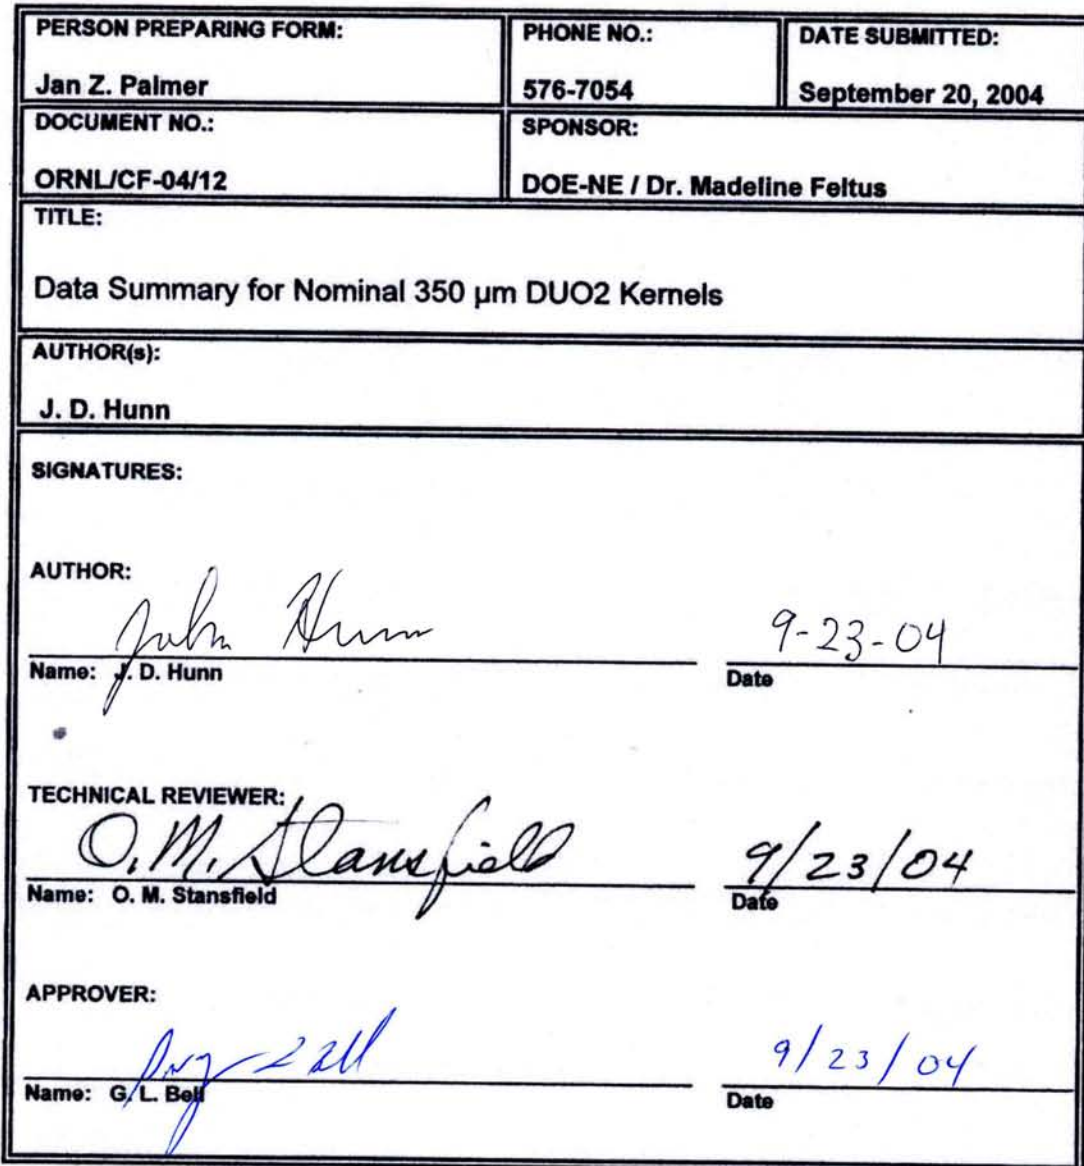 PERSON PREPARING FORM: PHONE NO.: DATE SUBMITTED:
Jan Z. Palmer 576-7054 September 20, 2004
DOCUMENT NO.: SPONSOR:
ORNL/CF-04/12 DOE-NE / Dr. Madeline Feltus
TITLE:
Data Summary for Nominal 350 µm DUO2 Kernels
AUTHOR(s):
J. D. Hunn
SIGNATURES:
AUTHOR:
John Hunn 9-23-04
Name: J. D. Hunn Date
TECHNICAL REVIEWER:
O. M. Stansfield 9/23/04
Name: O. M. Stansfield Date
APPROVER:
9/23/04
Name: G. L. Bell Date